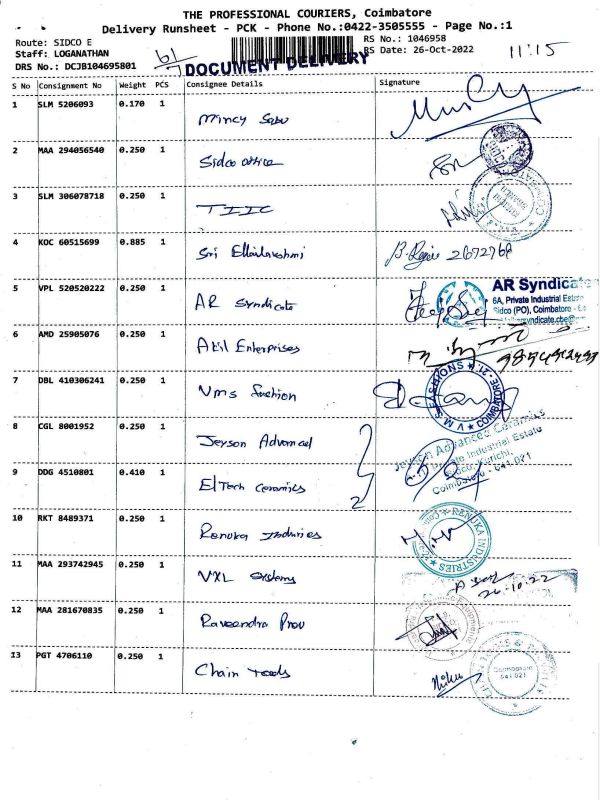 THE PROFESSIONAL COURIERS, Coimbatore
Delivery Runsheet - PCK - Phone No.:0422-3505555 - Page No.:1
Route: SIDCO E
RS No.: 1046958
Staff: LOGANATHAN
RS Date: 26-Oct-2022
11:15
DRS No.: DCJB104695801
DOCUMENT DELIVERY
S No Consignment No Weight PCS Consignee Details Signature
1 SLM 5206093 0.170 1 Mincy Sabu
2 MAA 294056540 0.250 1 Sidco office
3 SLM 306078718 0.250 1 TIIC
4 KOC 60515699 0.885 1 Sri
5 VPL 520520222 0.250 1 AR Syndicate
AR Syndicate
6A, Private Industrial Estate
Sidco (PO), Coimbatore
6 AMD 25905076 0.250 1 Akil Enterprises
7 DBL 410306241 0.250 1 Vms Fashion
V M S FASHIONS COIMBATORE - 21
8 CGL 8001952 0.250 1 Jeyson Advanced
Jeyson Advanced Ceramics
Private Industrial Estate
Sidco, Kurichi,
Coimbatore - 641 021
9 DDG 4510801 0.410 1 ElTech Ceramics
2
10 RKT 8489371 0.250 1 Renuka Industries
RENUKA INDUSTRIES
11 MAA 293742945 0.250 1 VXL Systems
26.10.22
12 MAA 281670835 0.250 1 Raveendra
13 PGT 4706110 0.250 1 Chain Tools
Coimbatore
641 021